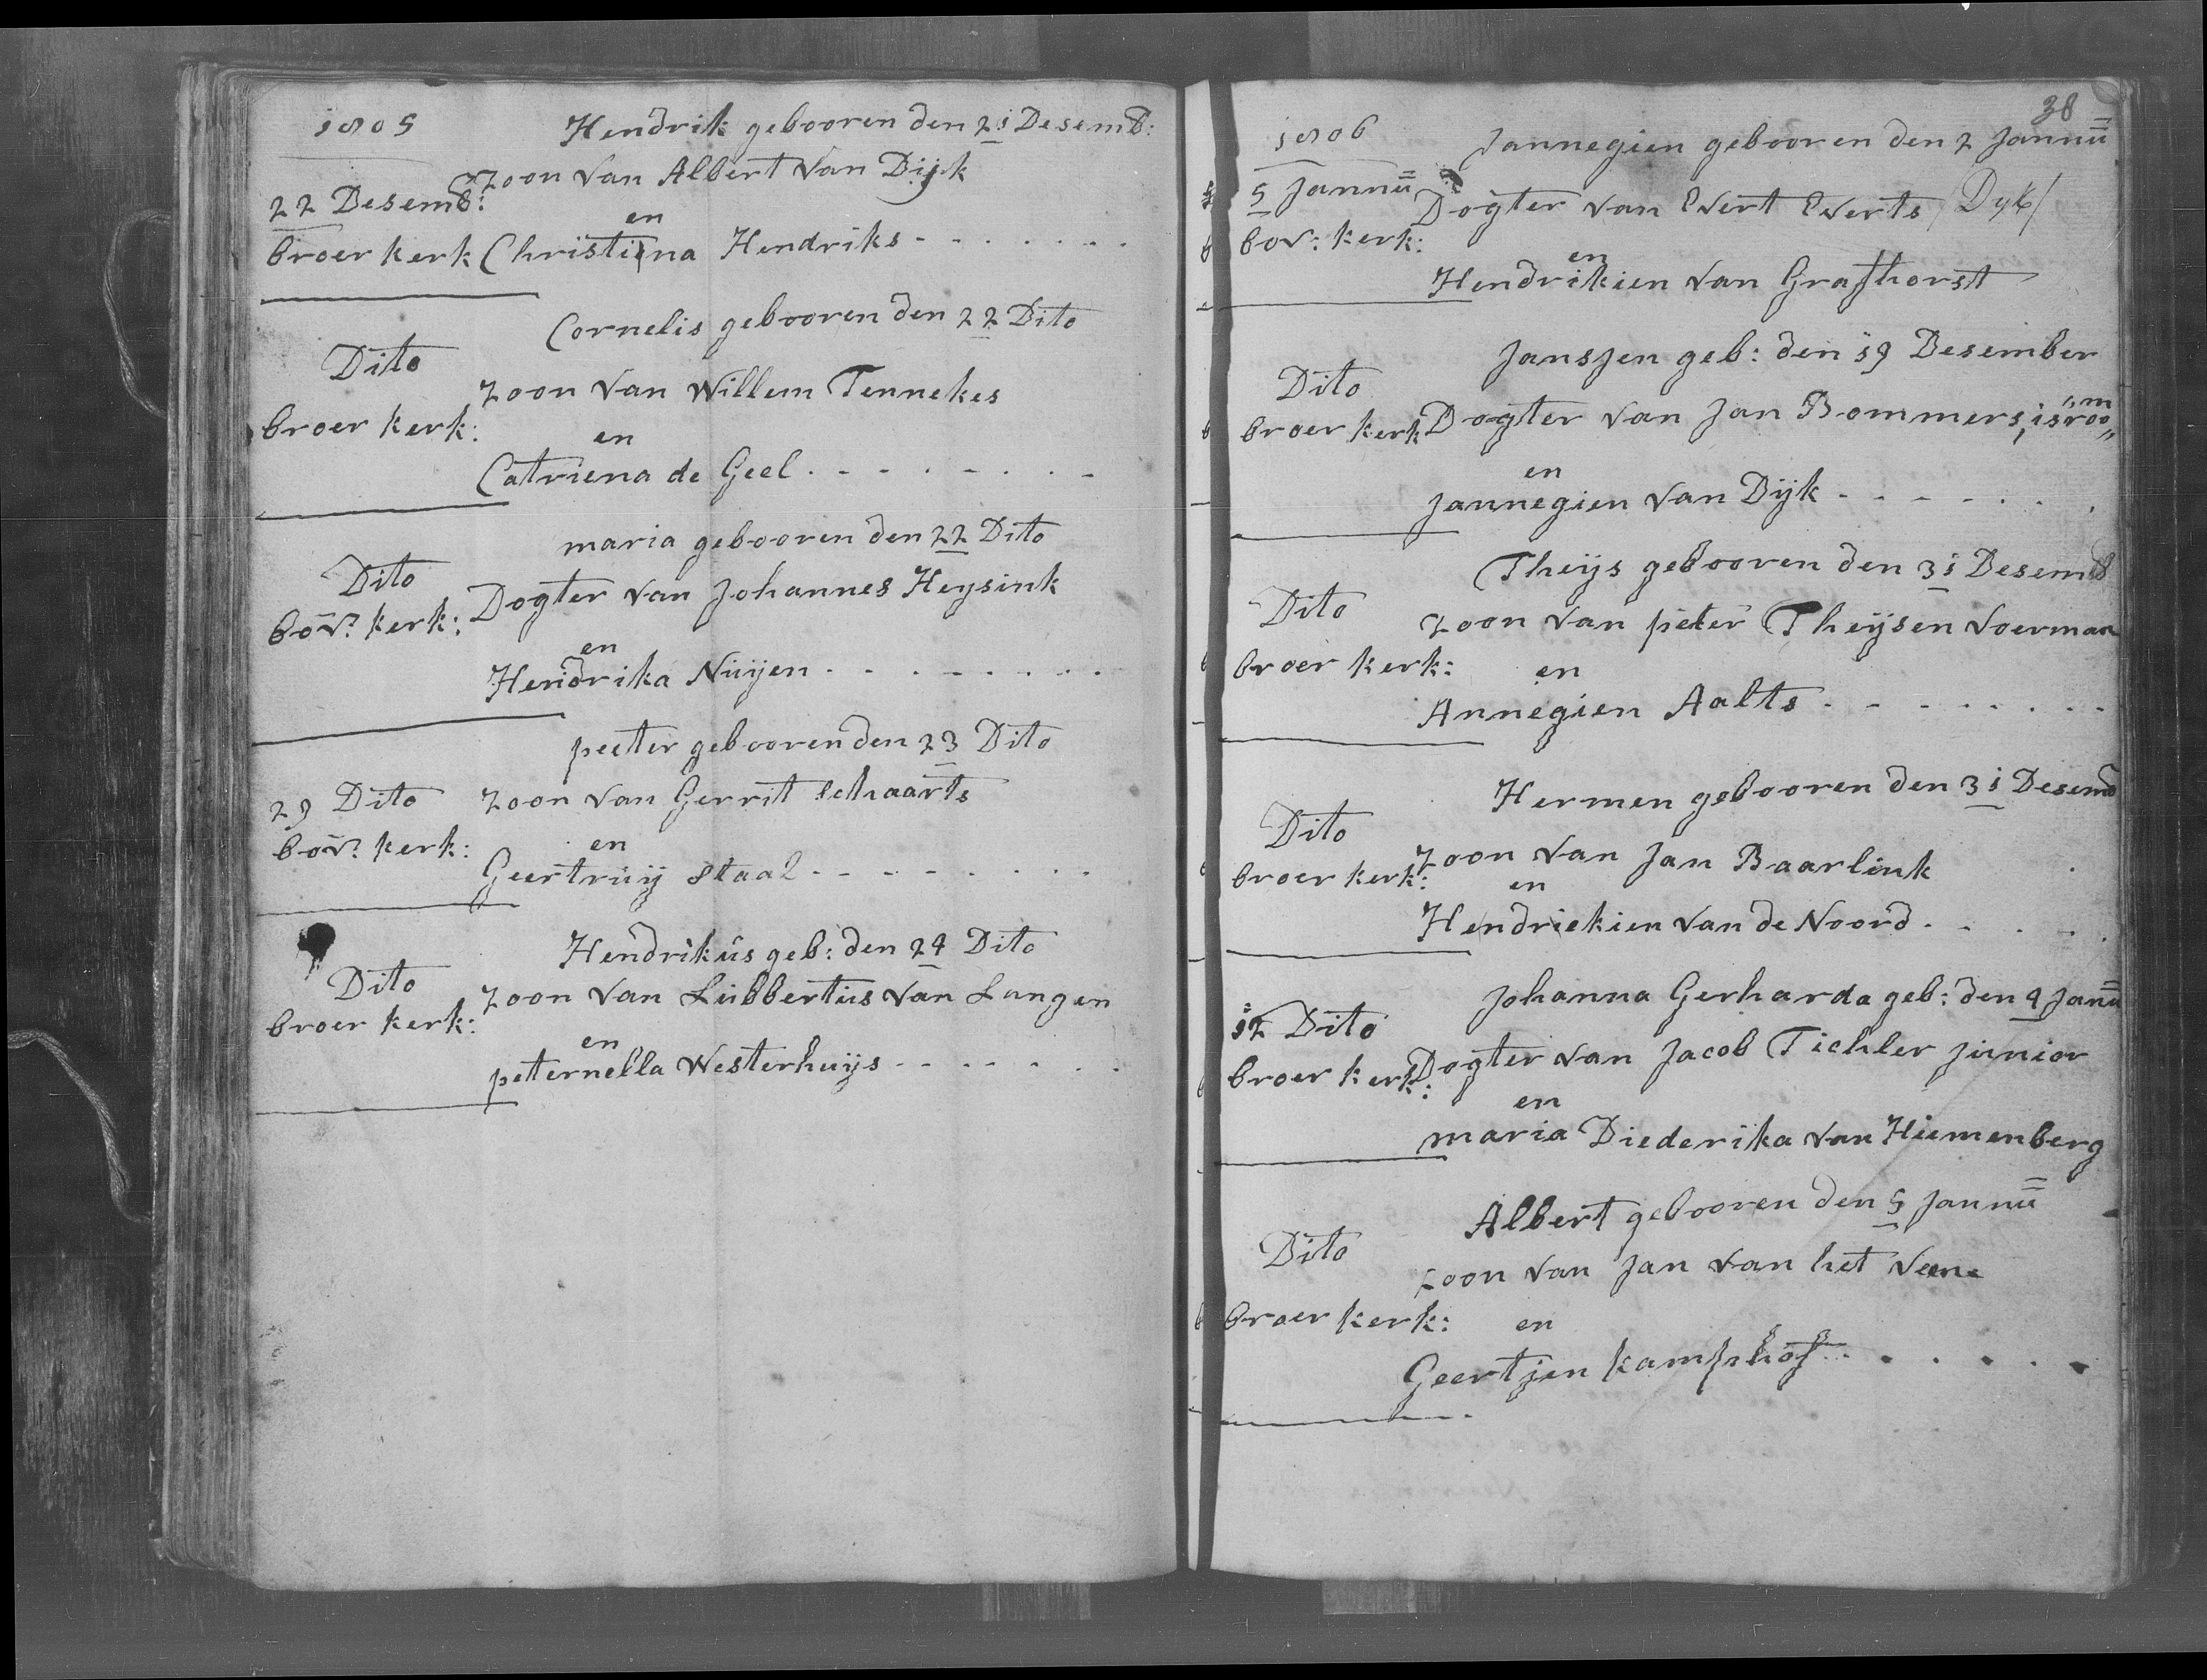 1805
Hendrik gebooren den 21 Desemb:
22 Desemb:
zoon van Albert van Dijk
en
broer kerk
Christiena Hendriks - - - - - - -
Cornelis gebooren den 22 Dito
Dito
zoon van Willem Tennekes
broer kerk:
en
Catriena de Geel - - - - - - - -
maria gebooren den 22 Dito
Dito
Dogter van Johannes Heysink
bov: kerk:
en
Hendrika Nuijen - - - - - - - -
peeter gebooren den 23 Dito
29 Dito
zoon van Gerrit Schaarts
bov: kerk:
en
Geertruij Staal - - - - - - - -
Hendrikus geb: den 24 Dito
Dito
zoon van Lubbertus van Langen
broer kerk:
en
peternella Westerhuijs - - - - - - -
38
1806
Jannegien gebooren den 2 Jannu
5 Jannu
Dogter van Evert Everts / Dyk /
bov: kerk:
en
Hendrikien van Grafhorst
Jansjen geb: den 19 Desember
Dito
Dogter van Jan Bommers, is room
broer kerk
en
Jannegien van Dijk - - - - - -
Theijs gebooren den 31 Desemb
Dito
zoon van peter Theijsen voerman
broer kerk:
en
Annegien Aalts - - - - - - - -
Hermen gebooren den 31 Desemb
Dito
zoon van Jan Baarlink
broer kerk:
en
Hendriekien van de Noord - - - - -
Johanna Gerharda geb: den 4 Janu
12 Dito
Dogter van Jacob Tichler junior
broer kerk:
en
maria Diederika van Hiemenberg
Albert gebooren den 5 Jannu
Dito
zoon van Jan van het Veene
broer kerk:
en
Geertjen kamphof - - - - - -